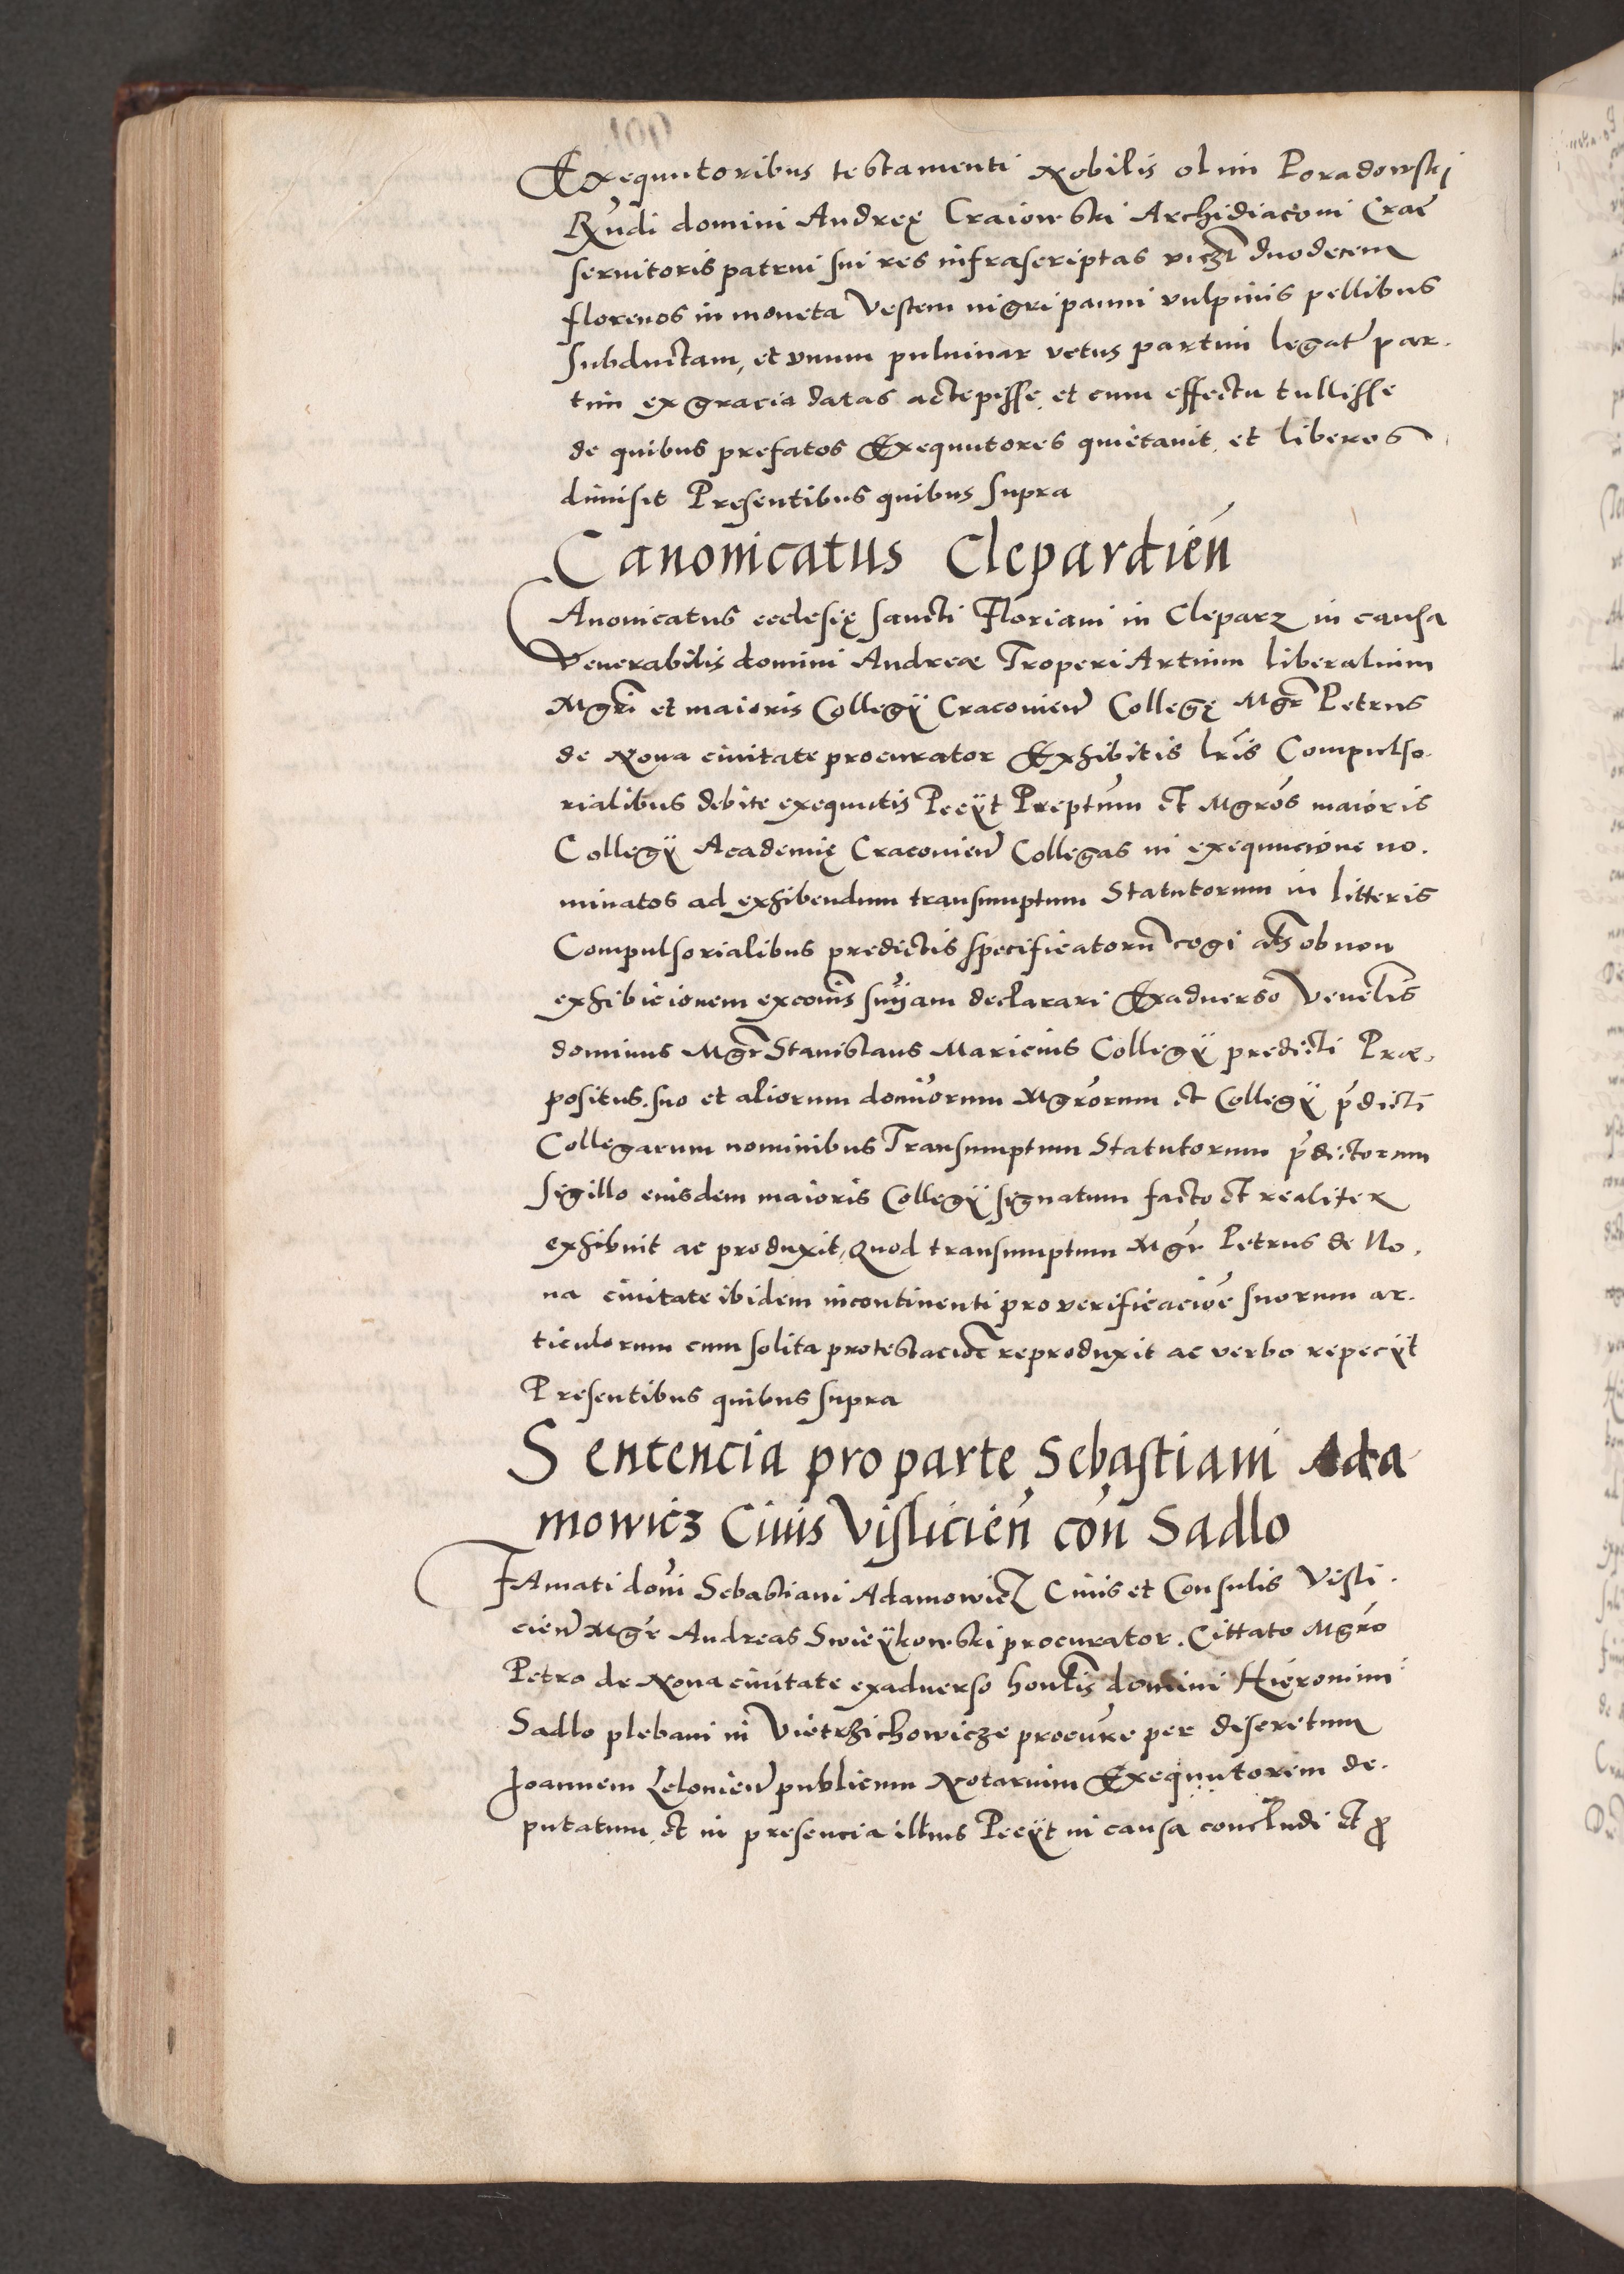 Exequutoribus testamenti Nobilis olim Poradowskj
Rᷠndi domini Andreę Craiowski Archidiaconi Crac̄
seruitoris patrui sui res infrascriptas viczł duodecem
florenos in moneta Vestem nigri panni vulpinis pellibus
subductam, et vnum puluinar vetus partim legat̄ par.
tim ex gracia datas accepisse, et cum effectu tullisse
de quibus prefatos Exequutores quietauit, et liberos
dimisit Presentibus quibus supra
Canonicatus Clepardień
CAnonicatus ecclesię sancti Floriani in Cleparz in causa
Venerabilis domini Andreæ Troperi Artium liberalium
Mgrī et maioris Collegÿ Cracovieн̄ Collegę Mgr̄ Petrus
de Noua ciuitate procurator Exhibitis lr̄is Compulso.
rialibus debite exequutis Peeÿt Prept̄um et Mgr̄os maioris
Collegÿ Academię Cracovień Collegas in exequucione no.
minatos ad exhibendum transumptum Statutorum in litteris
Compulsorialibus predictis specificatorū cogi als̄ ob non
exhibicionem excom̄s sn̄ÿam declarari Exaduerso Venel̄is
dominus Mgr̄ Stanislaus Maricius Collegÿ predicti Præ.
positus, suo et aliorum domīorum Mgr̄orum et Collegÿ p̄dicti
Collegarum nominibus Transumptum Statutorum p̄dictorum
sigillo eiusdem maioris Collegÿ signatum facto et realiter
exhibuit ac produxit, Quod transumptum Mgr̄ Petrus de No.
ua ciuitate ibidem incontinenti pro verificaciōe suorum ar.
ticulorum cum solita protestaciōe reproduxit ac verbo repecÿt
Presentibus quibus supra
Sentencia pro parte Sebastiani Ada
mowicz Ciuis Vislicień coń Sadlo
FAmati dom̄i Sebastiani Adamowicz Ciuis et Consulis Visli.
cień Mgr̄ Andreas Swieÿkowski procurator. Cittato Mgr̄o
Petro de Noua ciuitate exaduerso honl̄is domini Hieronimi
Sadlo plebani in Vietrzichowicze procur̄e per discretum
Joannem Lelonień publicum Notarium Exequutorem de.
putatum, et in presencia illius Peeÿt in causa concludi et ꝓ